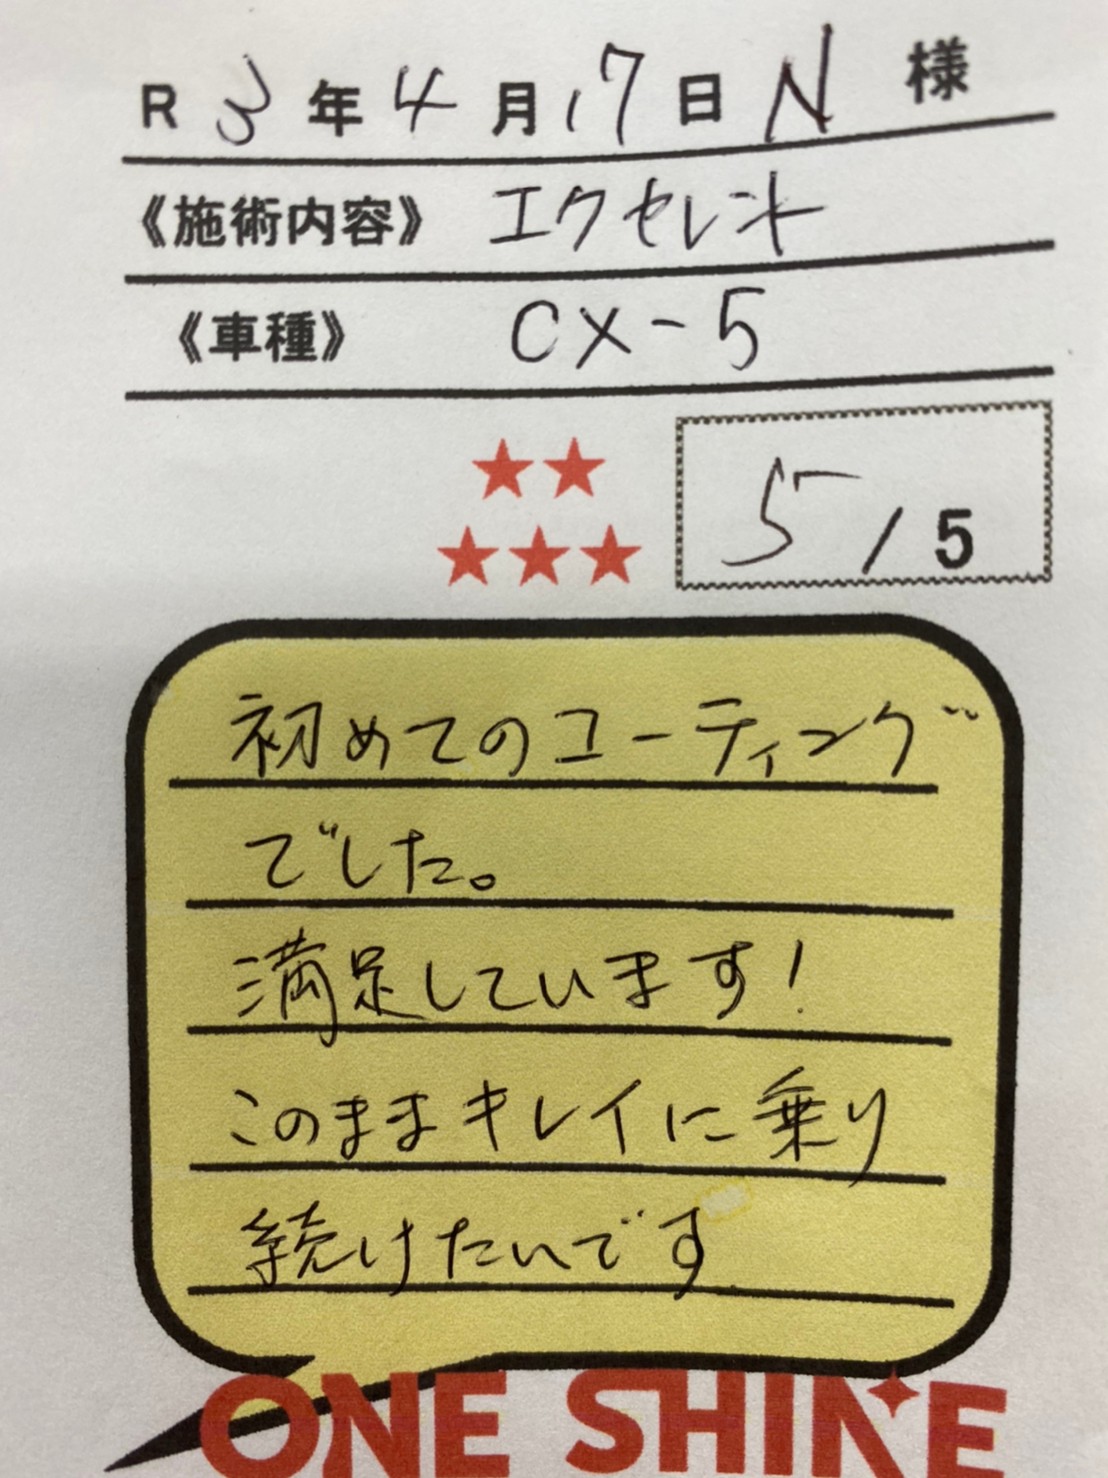 R 3年4月17日 N 様
《施術内容》 エクセレント
《車種》 CX-5
★★
★★★ 5/5
初めてのコーティング
でした。
満足しています!
このままキレイに乗り
続けたいです
ONE SHINE